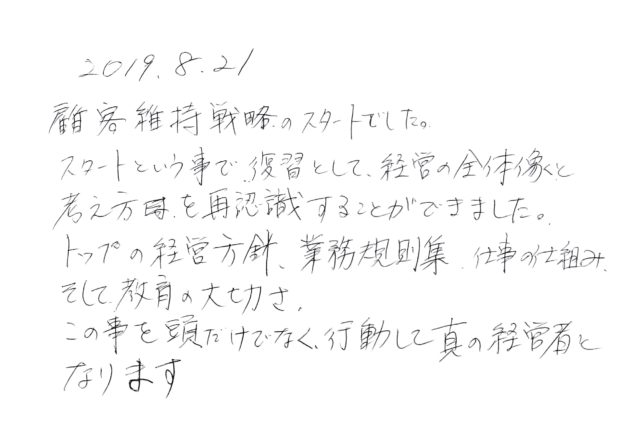 2019.8.21
顧客維持戦略のスタートでした。
スタートという事で、復習として、経営の全体像と
考え方を再認識することができました。
トップの経営方針、業務規則集、仕事の仕組み、
そして教育の大切さ。
この事を頭だけでなく、行動して真の経営者と
なります